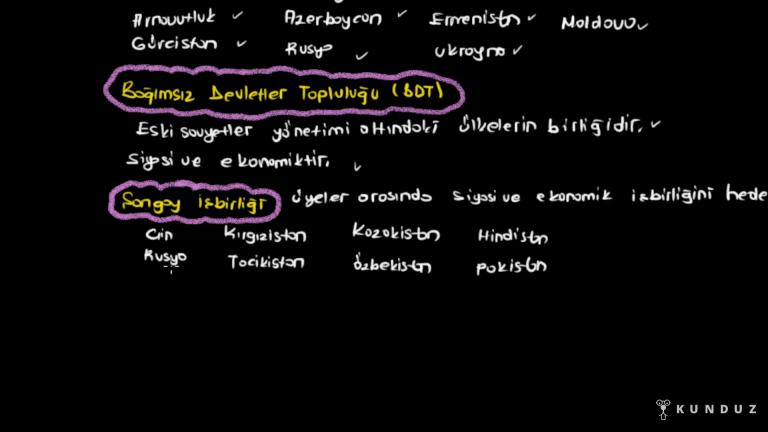 Arnavutluk ✓ Azerbaycan ✓ Ermenistan ✓ Moldova ✓
Gürcistan ✓ Rusya ✓ Ukrayna ✓
Bağımsız Devletler Topluluğu (BDT)
Eski sovyetler yönetimi altındaki ülkelerin birliğidir. ✓
Siyasi ve ekonomiktir. ✓
Şangay işbirliği üyeler arasında siyasi ve ekonomik işbirliğini hede
Çin Kırgızistan Kazakistan Hindistan
Rusya Tacikistan Özbekistan Pakistan
KUNDUZ